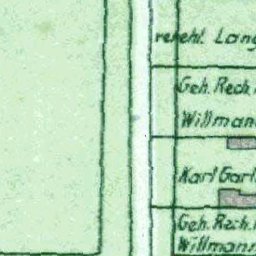 verehl. Lang
Geh. Rech.
Willman
Karl Garl
Geh. Rech.
Willmann